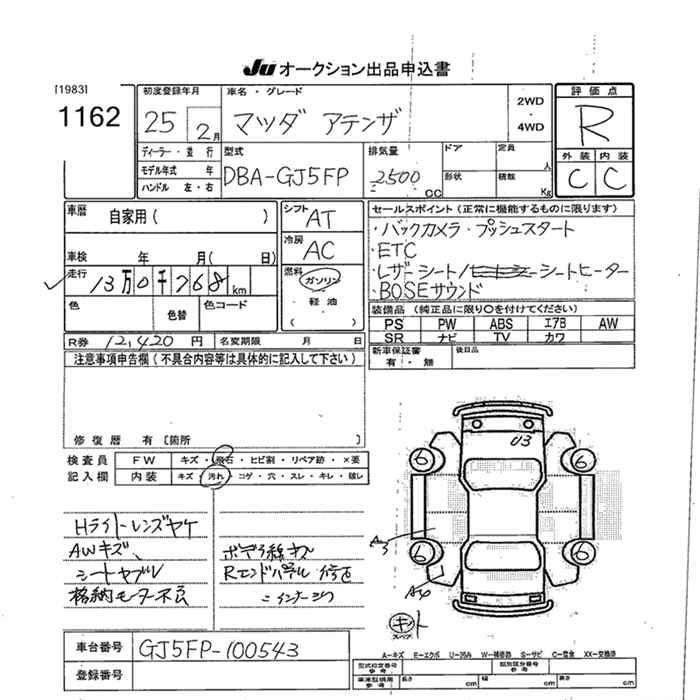 Ju オークション出品申込書
[1983]
1162
初度登録年月
25 2月
車名・グレード
マツダ アテンザ
2WD
・
4WD
評価点
R
外装 内装
C C
ディーラー・並行
モデル年式 年
ハンドル 左・右
型式
DBA-GJ5FP
排気量
2500 cc
ドア
形状
定員
人
積載
Kg
車歴
自家用( )
車検 年 月( 日)
走行
13万0千768 km
色
色替
色コード
シフト
AT
冷房
AC
燃料
ガソリン
軽油
( )
セールスポイント(正常に機能するものに限ります)
・バックカメラ・プッシュスタート
・ETC
・レザーシート/シートヒーター
・BOSEサウンド
装備品(純正品に限り○を付けてください)
PS PW ABS エアB AW
SR ナビ TV カワ
R券 12,420 円
名変期限 月 日
新車保証書
有・無
後日品
注意事項申告欄(不具合内容等は具体的に記入して下さい)
修復歴 有〔箇所 〕
検査員
記入欄
FW キズ・飛石・ヒビ割・リペア跡・×要
内装 キズ・汚れ・コゲ・穴・スレ・キレ・破レ
Hライトレンズヤケ
AWキズ、
シートヤブレ
格納モーター不良
ボデー線キズ
Rエンドパネル
U3
6 6
6 6
A3
A4
キット
スペア
車台番号 GJ5FP-100543
登録番号
A-キズ E-エクボ U-凹み W-補修跡 S-サビ C-腐食 XX-交換済
型式指定番号
参考
類別区分番号
参考
車庫証明用
参考
長さ cm
幅 cm
高さ cm